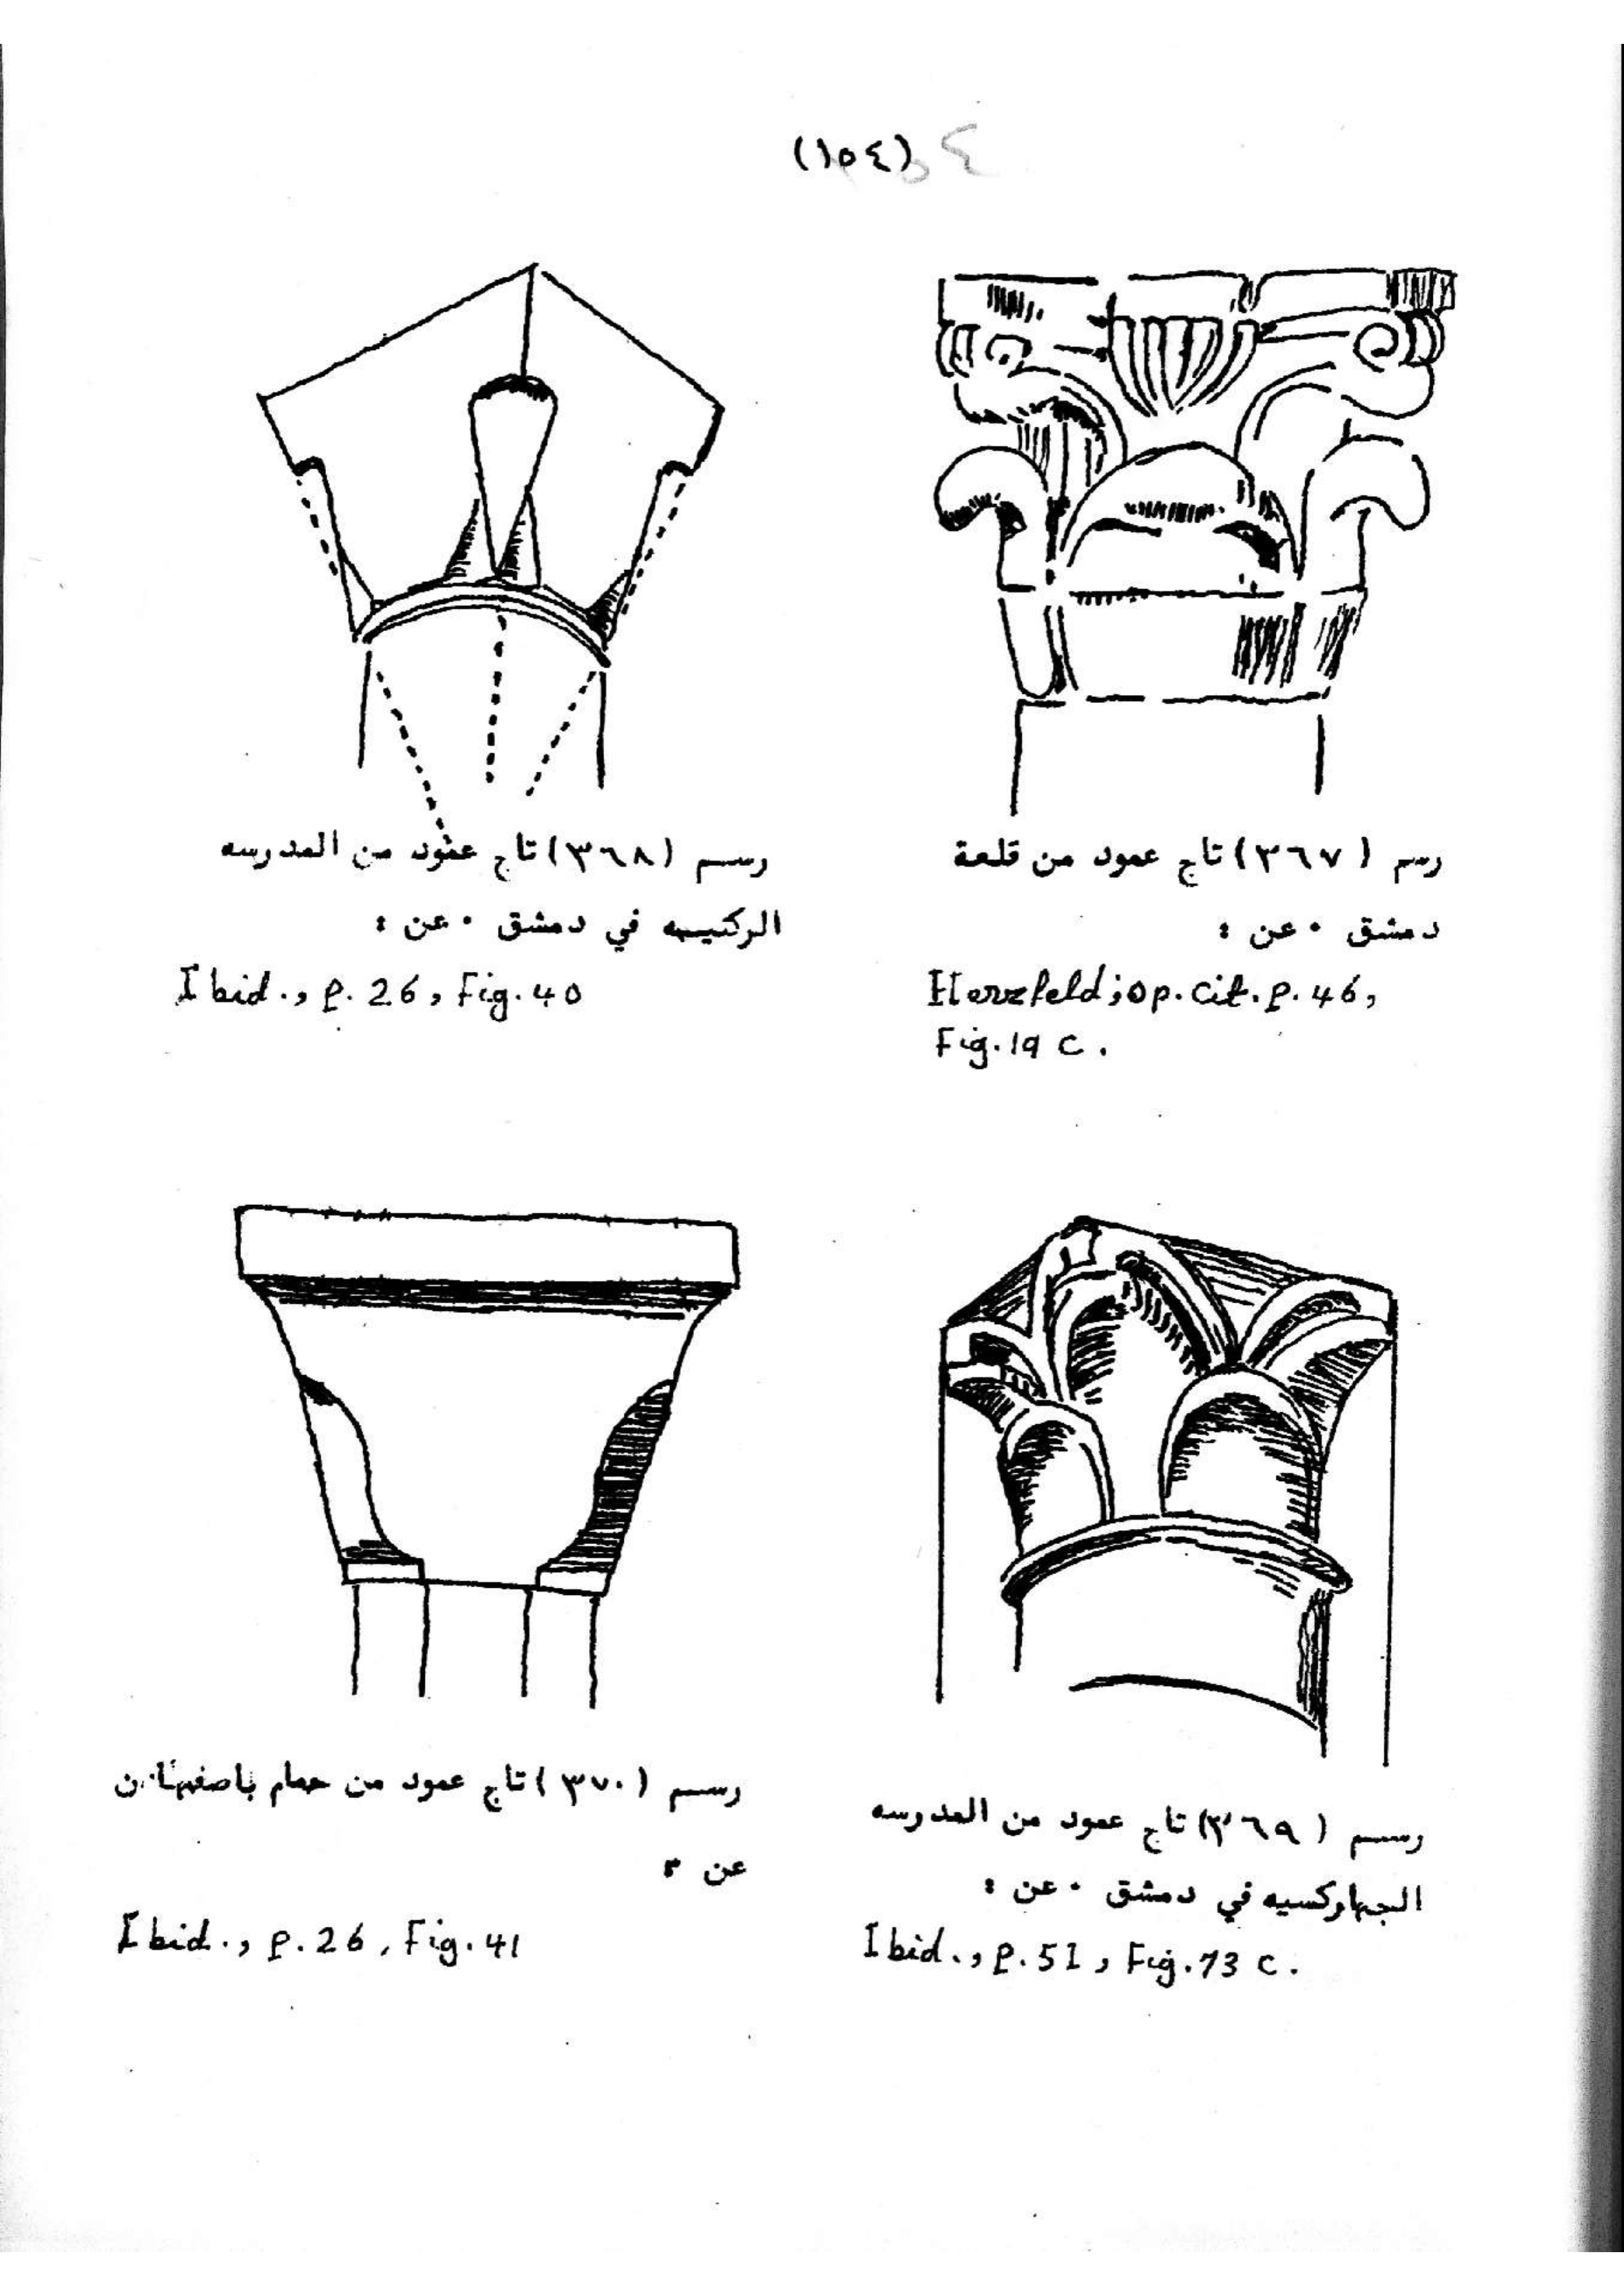 (١٥٤)
رسم (٣٦٧) تاج عمود من قلعة
دمشق ٠ عن :
Herzfeld; op. cit. p. 46,
Fig. 19 c.
رسم (٣٦٨) تاج عمود من المدرسه
الركنيه في دمشق ٠ عن :
Ibid., p. 26, Fig. 40
رسم (٣٦٩) تاج عمود من المدرسه
الجهاركسيه في دمشق ٠ عن :
Ibid., p. 51, Fig. 73 c.
رسم (٣٧٠) تاج عمود من حمام باصفهان
عن :
Ibid., p. 26, Fig. 41